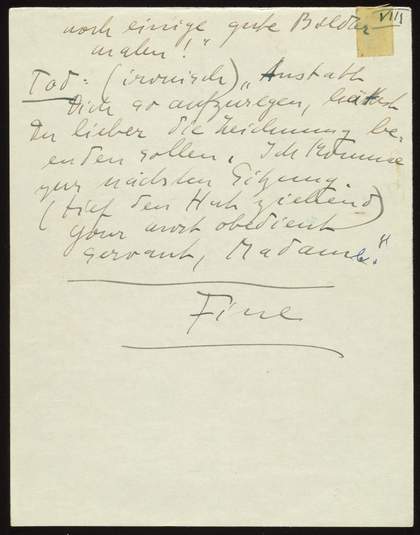 VIII
noch einige gute Bilder
malen!"
Tod: (ironisch) „Anstatt
Dich so aufzuregen, hättest
Du lieber die Zeichnung be-
enden sollen. Ich komme
zur nächsten Sitzung.
(tief den Hut ziehend)
Your most obedient
servant, Madame."
Fine